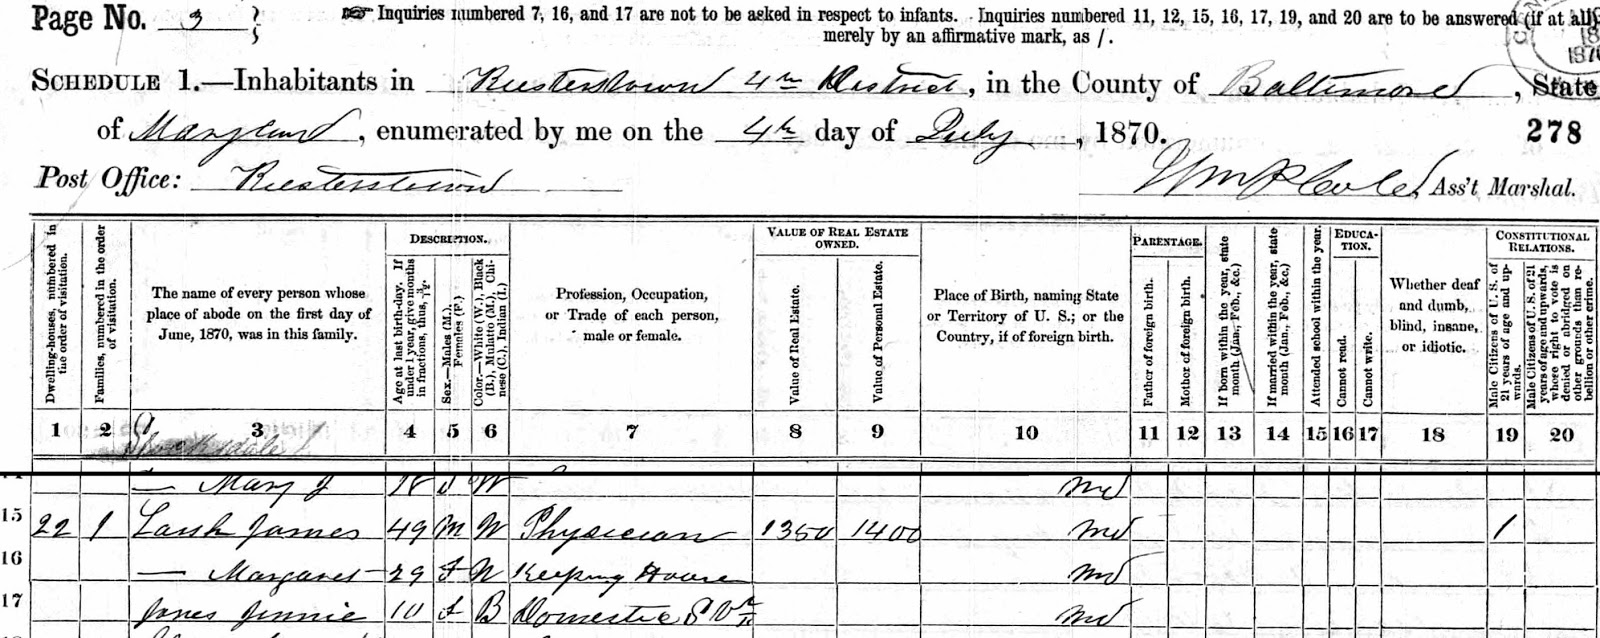 Page No. 3
☞ Inquiries numbered 7, 16, and 17 are not to be asked in respect to infants. Inquiries numbered 11, 12, 15, 16, 17, 19, and 20 are to be answered (if at all)
merely by an affirmative mark, as /.
SCHEDULE 1.—Inhabitants in Reisterstown 4th District, in the County of Baltimore, State
of Maryland, enumerated by me on the 4th day of July, 1870. 278
Post Office: Reisterstown
Ass't Marshal.
Dwelling-houses, numbered in the order of visitation.
Families, numbered in the order of visitation.
The name of every person whose place of abode on the first day of June, 1870, was in this family.
DESCRIPTION.
Age at last birth-day. If under 1 year, give months in fractions, thus, 3/12.
Sex.—Males (M.), Females (F.)
Color.—White (W.), Black (B.), Mulatto (M.), Chinese (C.), Indian (I.)
Profession, Occupation, or Trade of each person, male or female.
VALUE OF REAL ESTATE OWNED.
Value of Real Estate.
Value of Personal Estate.
Place of Birth, naming State or Territory of U. S.; or the Country, if of foreign birth.
PARENTAGE.
Father of foreign birth.
Mother of foreign birth.
If born within the year, state month (Jan., Feb., &c.)
If married within the year, state month (Jan., Feb., &c.)
Attended school within the year.
EDUCATION.
Cannot read.
Cannot write.
Whether deaf and dumb, blind, insane, or idiotic.
CONSTITUTIONAL RELATIONS.
Male Citizens of U. S. of 21 years of age and upwards.
Male Citizens of U. S. of 21 years of age and upwards, whose right to vote is denied or abridged on other grounds than rebellion or other crime.
1 2 3 4 5 6 7 8 9 10 11 12 13 14 15 16 17 18 19 20
Stocksdale
— Mary J 18 f W Md
15 22 1 James 49 M W Physician 1350 1400 Md 1
16 — Margaret 29 f W Keeping House Md
17 Jones Jennie 10 f B Domestic Md